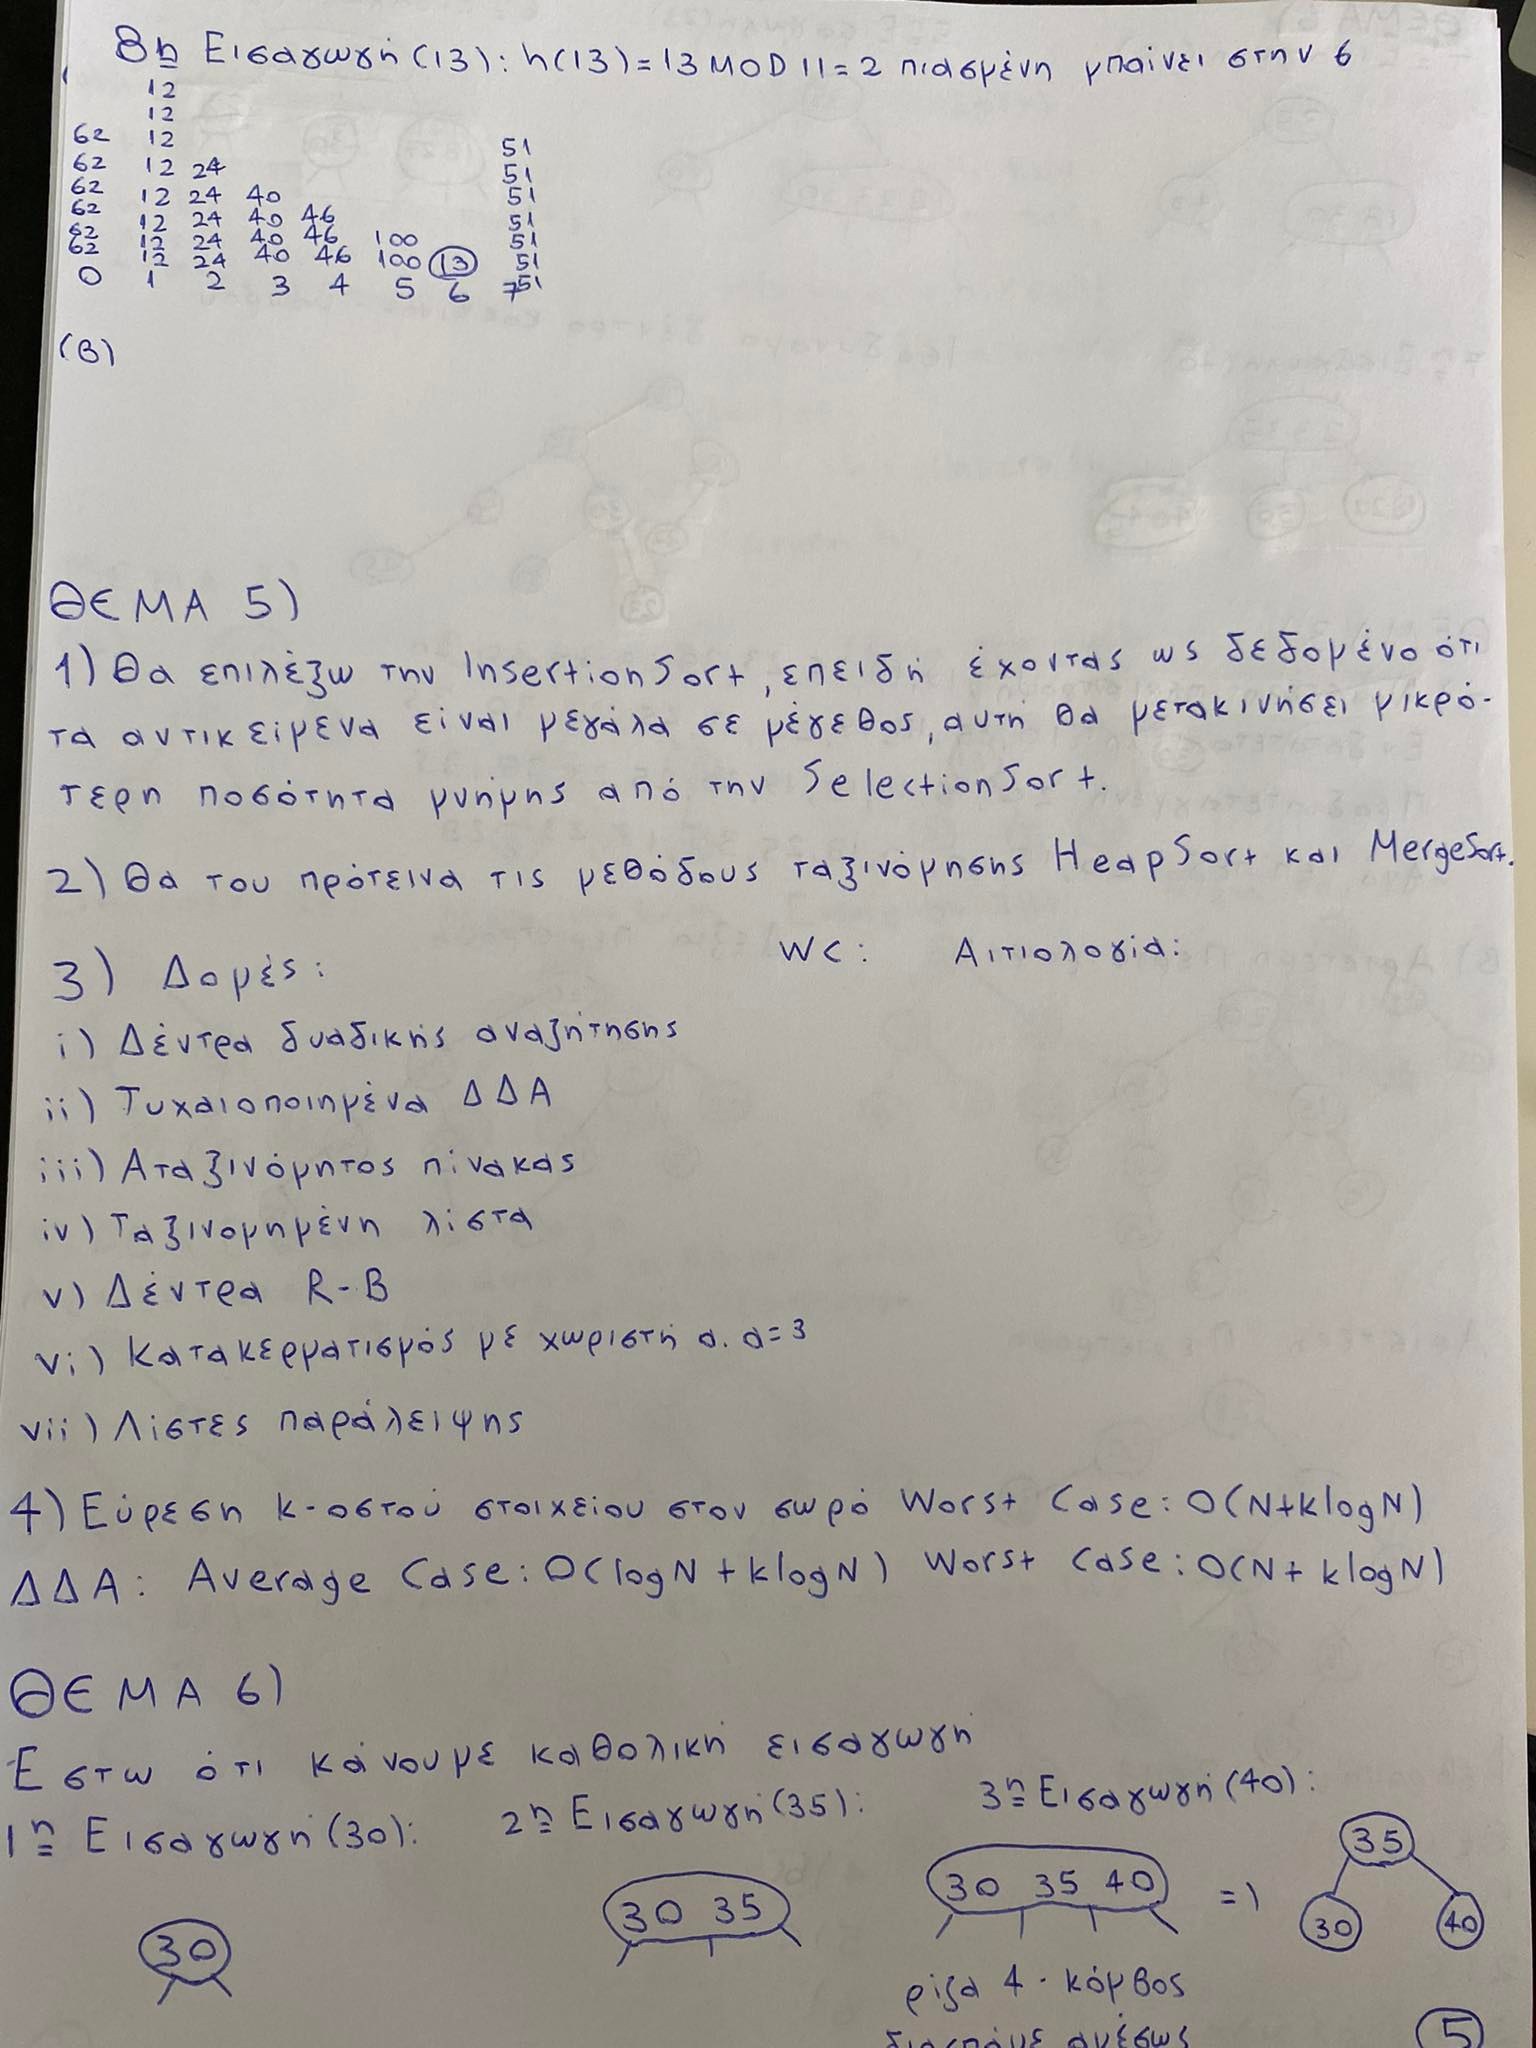 8η Εισαγωγή (13): h(13) = 13 MOD 11 = 2 πιασμένη μπαίνει στην 6
12
12
62 12 51
62 12 24 51
62 12 24 40 51
62 12 24 40 46 51
62 12 24 40 46 100 51
62 12 24 40 46 100 13 51
0 1 2 3 4 5 6 7 51
(Β)
ΘΕΜΑ 5)
1) Θα επιλέξω την InsertionSort, επειδή έχοντας ως δεδομένο ότι
τα αντικείμενα είναι μεγάλα σε μέγεθος, αυτή θα μετακινήσει μικρό-
τερη ποσότητα μνήμης από την SelectionSort.
2) Θα του πρότεινα τις μεθόδους ταξινόμησης HeapSort και MergeSort.
3) Δομές: WC: Αιτιολογία:
i) Δέντρα δυαδικής αναζήτησης
ii) Τυχαιοποιημένα ΔΔΑ
iii) Αταξινόμητος πίνακας
iv) Ταξινομημένη λίστα
v) Δέντρα R-B
vi) Κατακερματισμός με χωριστή α. α=3
vii) Λίστες παράλειψης
4) Εύρεση k-οστού στοιχείου στον σωρό Worst Case: O(N+klogN)
ΔΔΑ: Average Case: O(logN + klogN) Worst Case: O(N + klogN)
ΘΕΜΑ 6)
Εστω ότι κάνουμε καθολική εισαγωγή
1η Εισαγωγή (30): 2η Εισαγωγή (35): 3η Εισαγωγή (40):
30 30 35 30 35 40 => 35 30 40
ρίζα 4-κόμβος
διασπάμε αμέσως
5